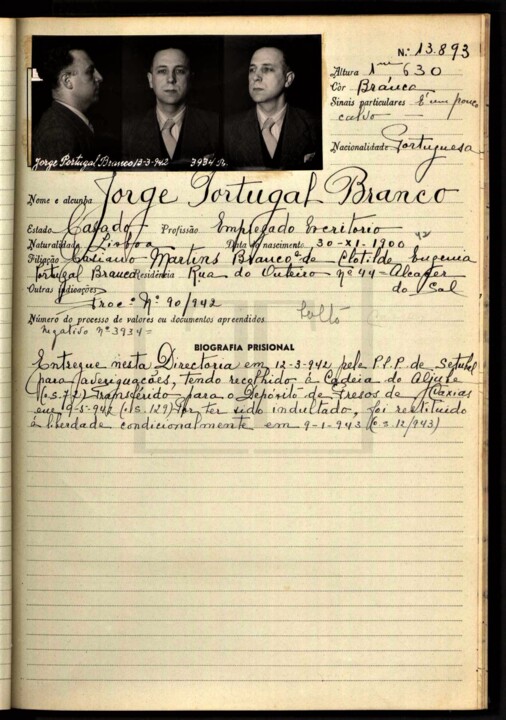 N.º 13.893
Altura 1m 630
Côr Branca
Sinais particulares É um pouco
calvo
Nacionalidade Portuguesa
Jorge Portugal Branco 12-3-942 3934 N.
Nome e alcunha Jorge Portugal Branco
Estado Casado Profissão Empregado Escritorio
Naturalidade Lisboa Data do nascimento 30-XI-1900 42
Filiação Casiano Martins Branco e de Clotilde Eugenia
Portugal Branco Residência Rua do Outeiro nº 44 = Alcacer
Outras indicações do Sal
Proc.º N.º 90/942
Número do processo de valores ou documentos apreendidos Solto
Negativo nº 3934 =
BIOGRAFIA PRISIONAL
Entregue nesta Directoria em 12-3-942 pela P.S.P. de Setubal
para averiguações, tendo recolhido à Cadeia do Aljube
(o.s. 72) Transferido para o Depósito de Presos de Caxias
em 9-5-942 (o.s. 129) Por ter sido indultado, foi restituido
à liberdade condicionalmente em 9-1-943 (o.s. 12/943)